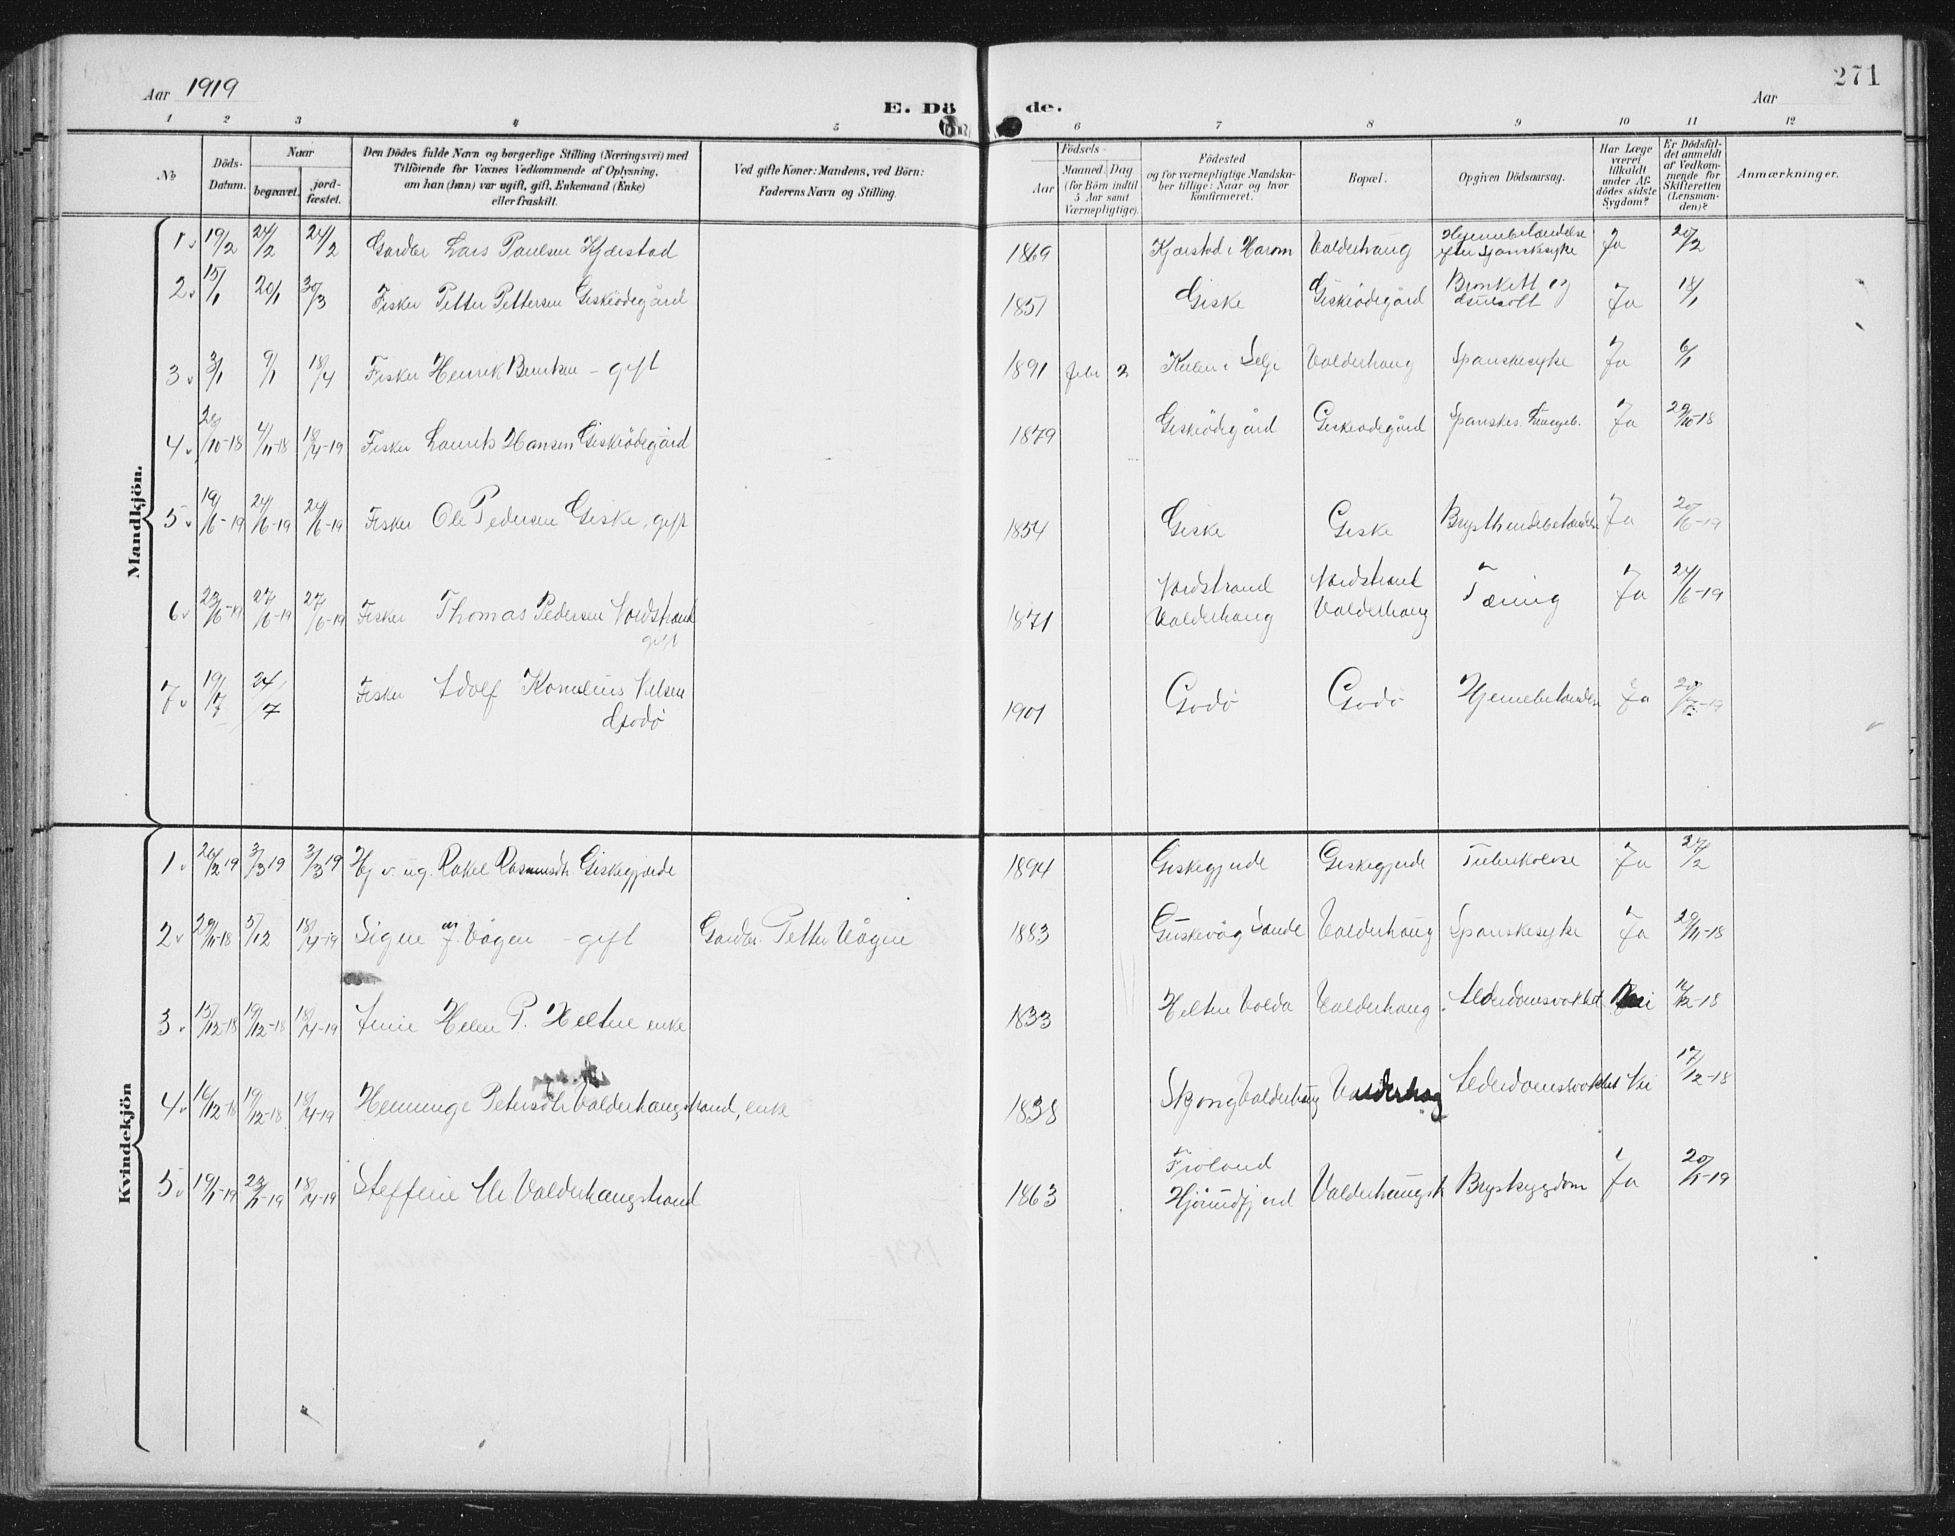 Aar 1919
E. Döde.
Aar
271
1 2 3 4 5 6 7 8 9 10 11 12
No
Döds-Datum.
Naar
begravet.
jord-fæstet.
Den Dödes fulde Navn og borgerlige Stilling (Næringsvei) med
Tilföiende for Voxnes Vedkommende af Oplysning,
om han (hun) var ugift, gift, Enkemand (Enke)
eller fraskilt.
Ved gifte Koner: Mandens, ved Börn:
Faderens Navn og Stilling.
Födsels-
Aar
Maaned. Dag
(for Börn indtil
5 Aar samt
Værnepligtige).
Födested
og for værnepligtige Mandska-
ber tillige: Naar og hvor
Konfirmeret.
Bopæl.
Opgiven Dödsaarsag.
Har Læge
været
tilkaldt
under Af-
dödes sidste
Sygdom?
Er Dödsfal-
det anmeldt
af Vedkom-
mende for
Skifteretten
(Lensman-
den)?
Anmærkninger.
Mandkjön.
1 19/2 24/2 24/2 Gardbr Lars Paulsen Kjærstad 1869 Kjærstad i Harom Valderhaug Hjernebetændelse efter spanskesyke Ja 20/2
2 15/1 20/1 30/3 Fisker Petter Pettersen Giskeödegård 1851 Giske Giskeödegård Bronkitt og Ja 18/1
3 3/1 9/1 18/4 Fisker Henrik Berntsen - gift 1891 febr 2 Selje Valderhaug Spanskesyke Ja 6/1
4 /10-18 4/11-18 18/4-19 Fisker Laurits Hansen Giskeödegård 1879 Giskeödegård Giskeödegård Spanskes. Ja 29/10-18
5 19/6-19 24/6-19 24/6-19 Fisker Ole Pedersen Giske, gift 1854 Giske Giske Brysthindebetændelse Ja 20/6-19
6 23/6-19 27/6-19 27/6-19 Fisker Thomas Pedersen Nordstrand gift 1871 Nordstrand Valderhaug Nordstrand Valderhaug Tæring Ja 24/6-19
7 19/7 24/7 Fisker Adolf Kornelius Nilsen Godö 1901 Godö Godö Hjernebetændelse Ja 20/7-19
Kvindekjön
1 26/2 19 3/3 19 3/3 19 Hj v. ug. Rakel Rasmusdtr Giskegjerde 1894 Giskegjerde Giskegjerde Tuberkolose Ja 27/2
2 29/11-18 5/12 18/4-19 Signe J. Vågen - gift Gardbr. Petter Vågen 1883 Gurskevåg Sande Valderhaug Spanskesyke Ja 29/11-18
3 15/12-18 19/12-18 18/4-19 Helen P. Heltne enke 1833 Heltne Volda Valderhaug Alderdomsvakhet Nei 16/12-18
4 16/12-18 19/12-18 18/4-19 Hemminge Petersdtr Valderhaugstrand, enke 1838 Skjong Valderhaug Valderhaug Alderdomsvakhet Nei 17/12-18
5 19/1-19 23/1-19 18/4-19 Steffine Valderhaugstrand 1863 Hjörundfjord Valderhaugstr Brystsygdom Ja 20/1-19